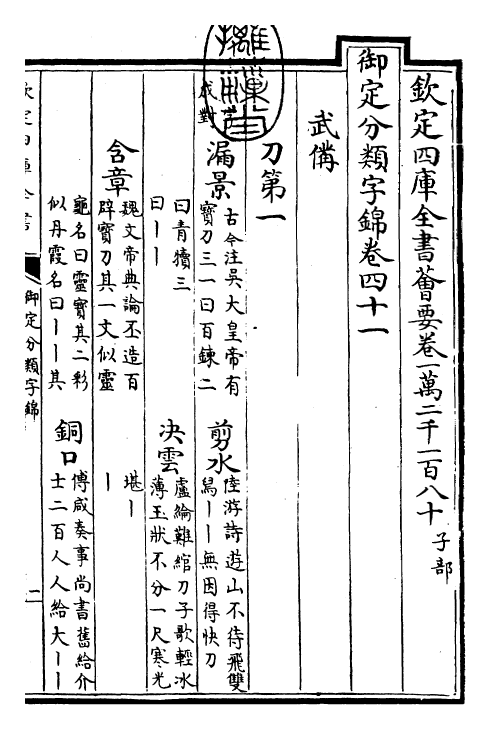 欽定四庫全書薈要卷一萬二千一百八十 子部
御定分類字錦卷四十一
武偹
刀第一
成對
漏景 古今注吳大皇帝有
寶刀三一曰百鍊二
曰青犢三
曰丨丨
剪水 陸游詩遊山不待飛雙
舃丨丨無因得快刀
決雲 盧綸難綰刀子歌輕冰
薄玉狀不分一尺寒光
堪丨
丨
含章 魏文帝典論丕造百
辟寶刀其一文似靈
龜名曰靈寶其二彩
似丹霞名曰丨丨其
銅口 傅咸奏事尚書舊給介
士二百人人給大丨丨
欽定四庫全書
御定分類字錦
摛藻堂